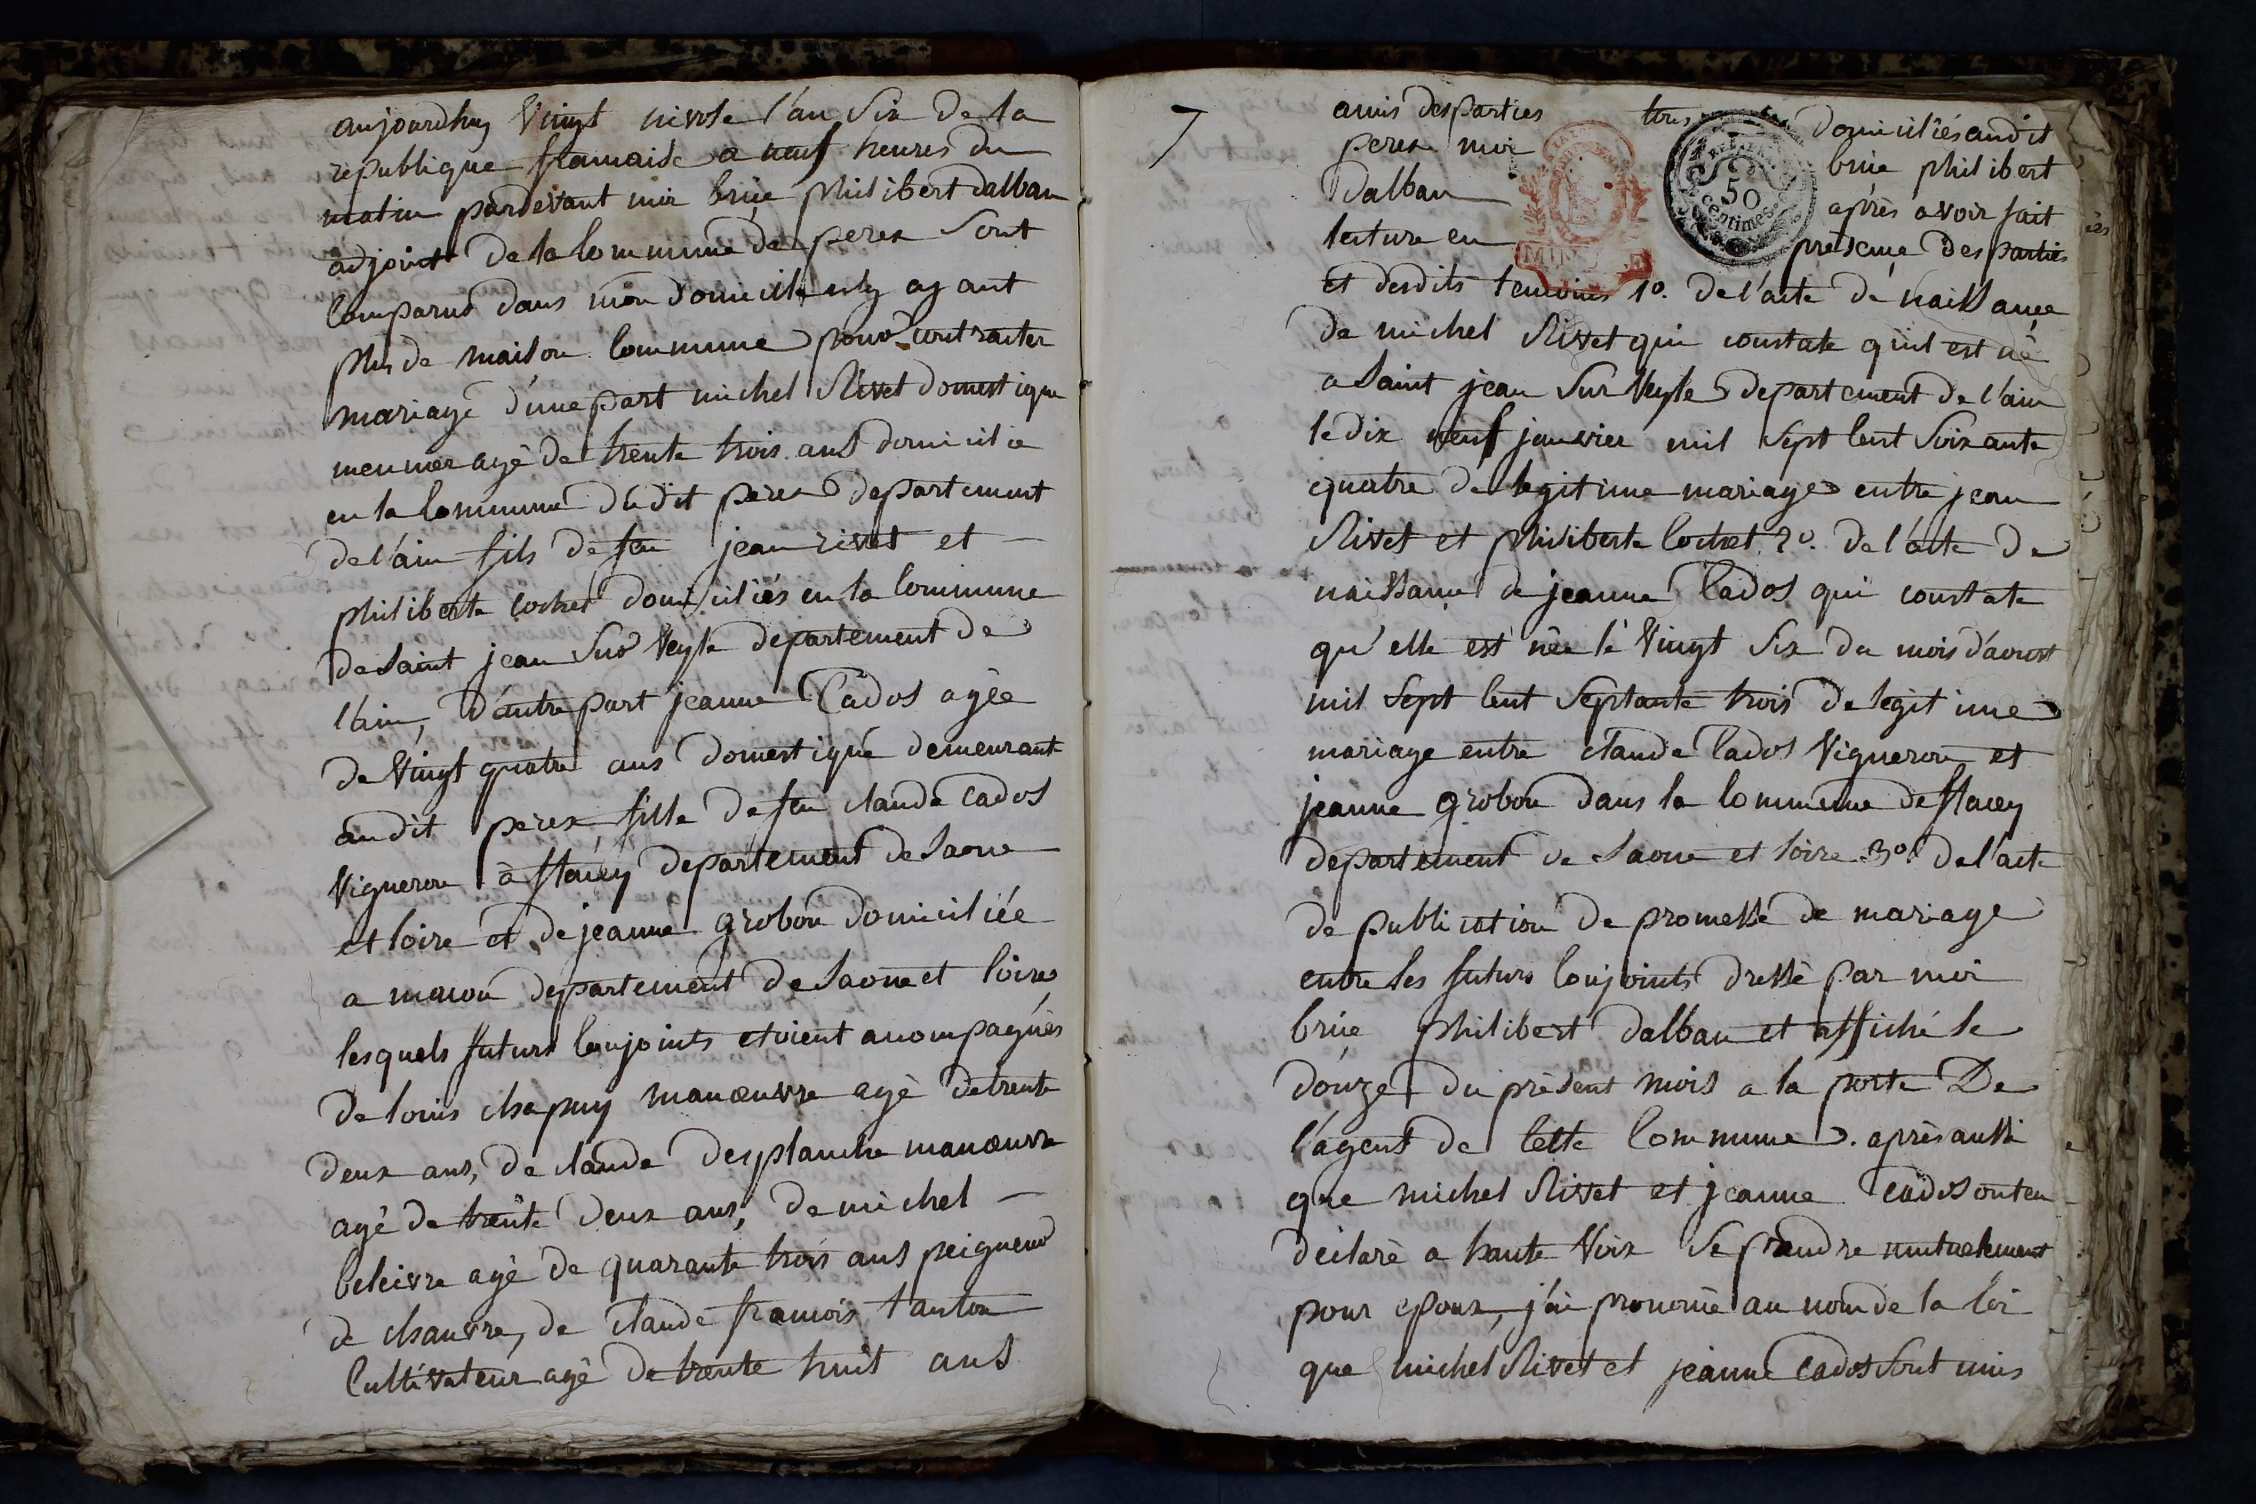 aujourdhuy Vingt nivose l'an Six De la
republique francaise a neuf heures du
matin pardevant moi brice philibert dalban
adjoint De la Commune de perex Sont
Comparus dans mon domicile ny ayant
plus de maison Commune pour contracter
mariage d'une part michel Rivet domestique
meunier agé de trente trois ans domicilié
en la Commune dudit perex departement
de l'ain fils de feu jean rivet et
philiberte cochet domiciliés en la Commune
de Saint jean Sur Veyle departement de
l'ain, d'autre part jeanne Cados agée
de Vingt quatre ans domestique demeurant
audit perex fille De feu claude Cados
Vigneron a flacey departement de Saone
et loire et de jeanne grobon domiciliée
a macon departement de Saone et loire
lesquels futurs Conjoints etoient acompagnés
De louis chapuy manœuvre agé de trente
deux ans, de claude desplanche manœuvre
agé de trente deux ans, de michel
beleivre agé de quarante trois ans peigneur
de chanvre, de claude francois tanton
Cultivateur agé de trente huit ans
7
amis des parties tous domiciliés audit
perex moi brice philibert
Dalban après avoir fait
lecture en présence Des parties
50
centimes
et desdits temoins 1º. De l'acte de naissance
de michel Rivet qui constate qu'il est né
a Saint jean Sur Veyle departement de l'ain
le dix neuf janvier mil Sept Cent Soixante
quatre de legitime mariage entre jean
Rivet et philiberte Cochet 2º. De l'acte de
naissance de jeanne Cados qui constate
qu'elle est née le Vingt Six du mois d'aoust
mil Sept Cent Septante trois de legitime
mariage entre claude Cados Vigneron et
jeanne grobon dans la Commune de flacey
departement de Saone et loire 3º. De l'acte
de publication de promesse de mariage
entre les futurs Conjoints dressé par moi
brice philibert dalban et affiché le
douze du présent mois a la porte De
l'agent de Cette Commune. après aussi
que michel Rivet et jeanne Cados ont eu
déclaré a haute Voix Se prendre mutuelement
pour epoux, j'ai prononcé au nom de la loi
que michel Rivet et jeanne Cados Sont unis